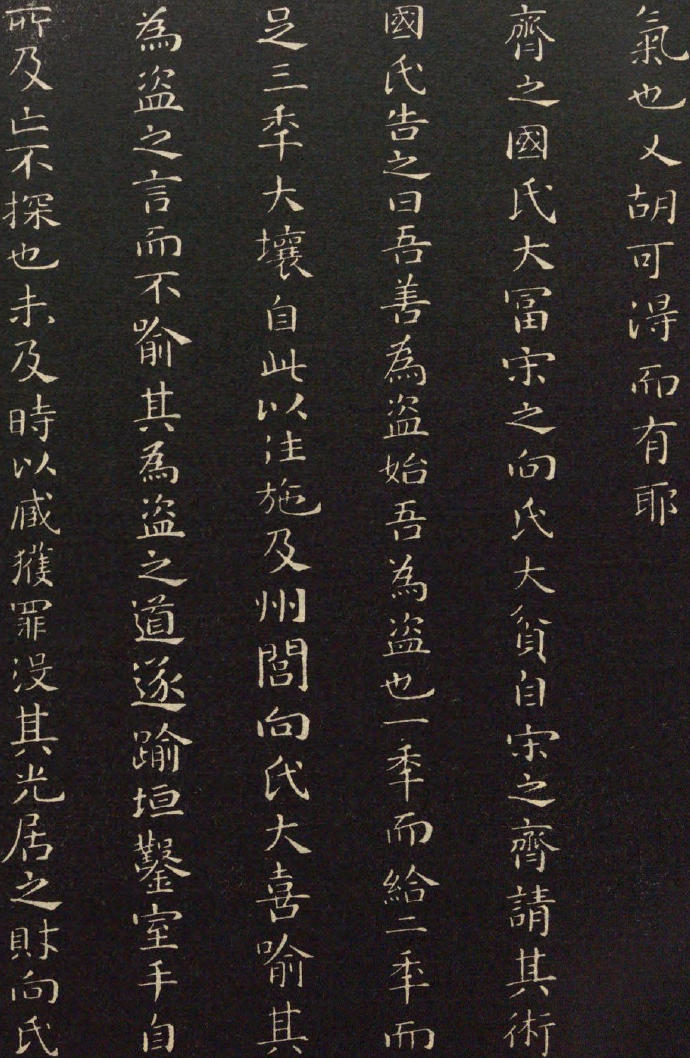 氣也又胡可淂而有耶
齊之國氏大冨宋之向氏大貧自宋之齊請其術
國氏告之曰吾善為盜始吾為盜也一秊而給二秊而
足三秊大壤自此以往施及州閭向氏大喜喻其
為盜之言而不喻其為盜之道遂踰垣鑿室手自
所及亡不探也未及時以臧獲罪没其先居之財向氏